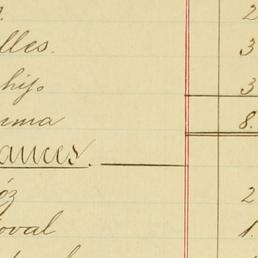 2
lles. 3
hijo 3
uma 8.
ances.
óz 2
oval 1.